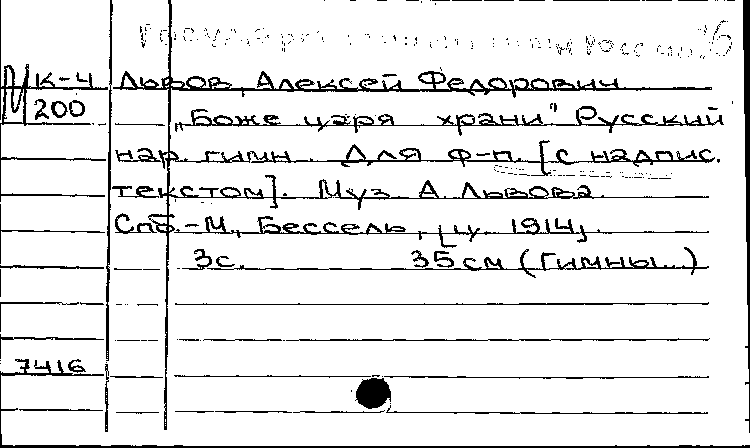 М К-4 Львов, Алексей Федорович
200 „Боже царя храни" Русский
нар. гимн. Для ф-п. [с надпис.
текстом]. Муз А. Львова.
Спб.-М., Бессель, [ц. 1914].
3с. 35 см (Гимны...)
7416